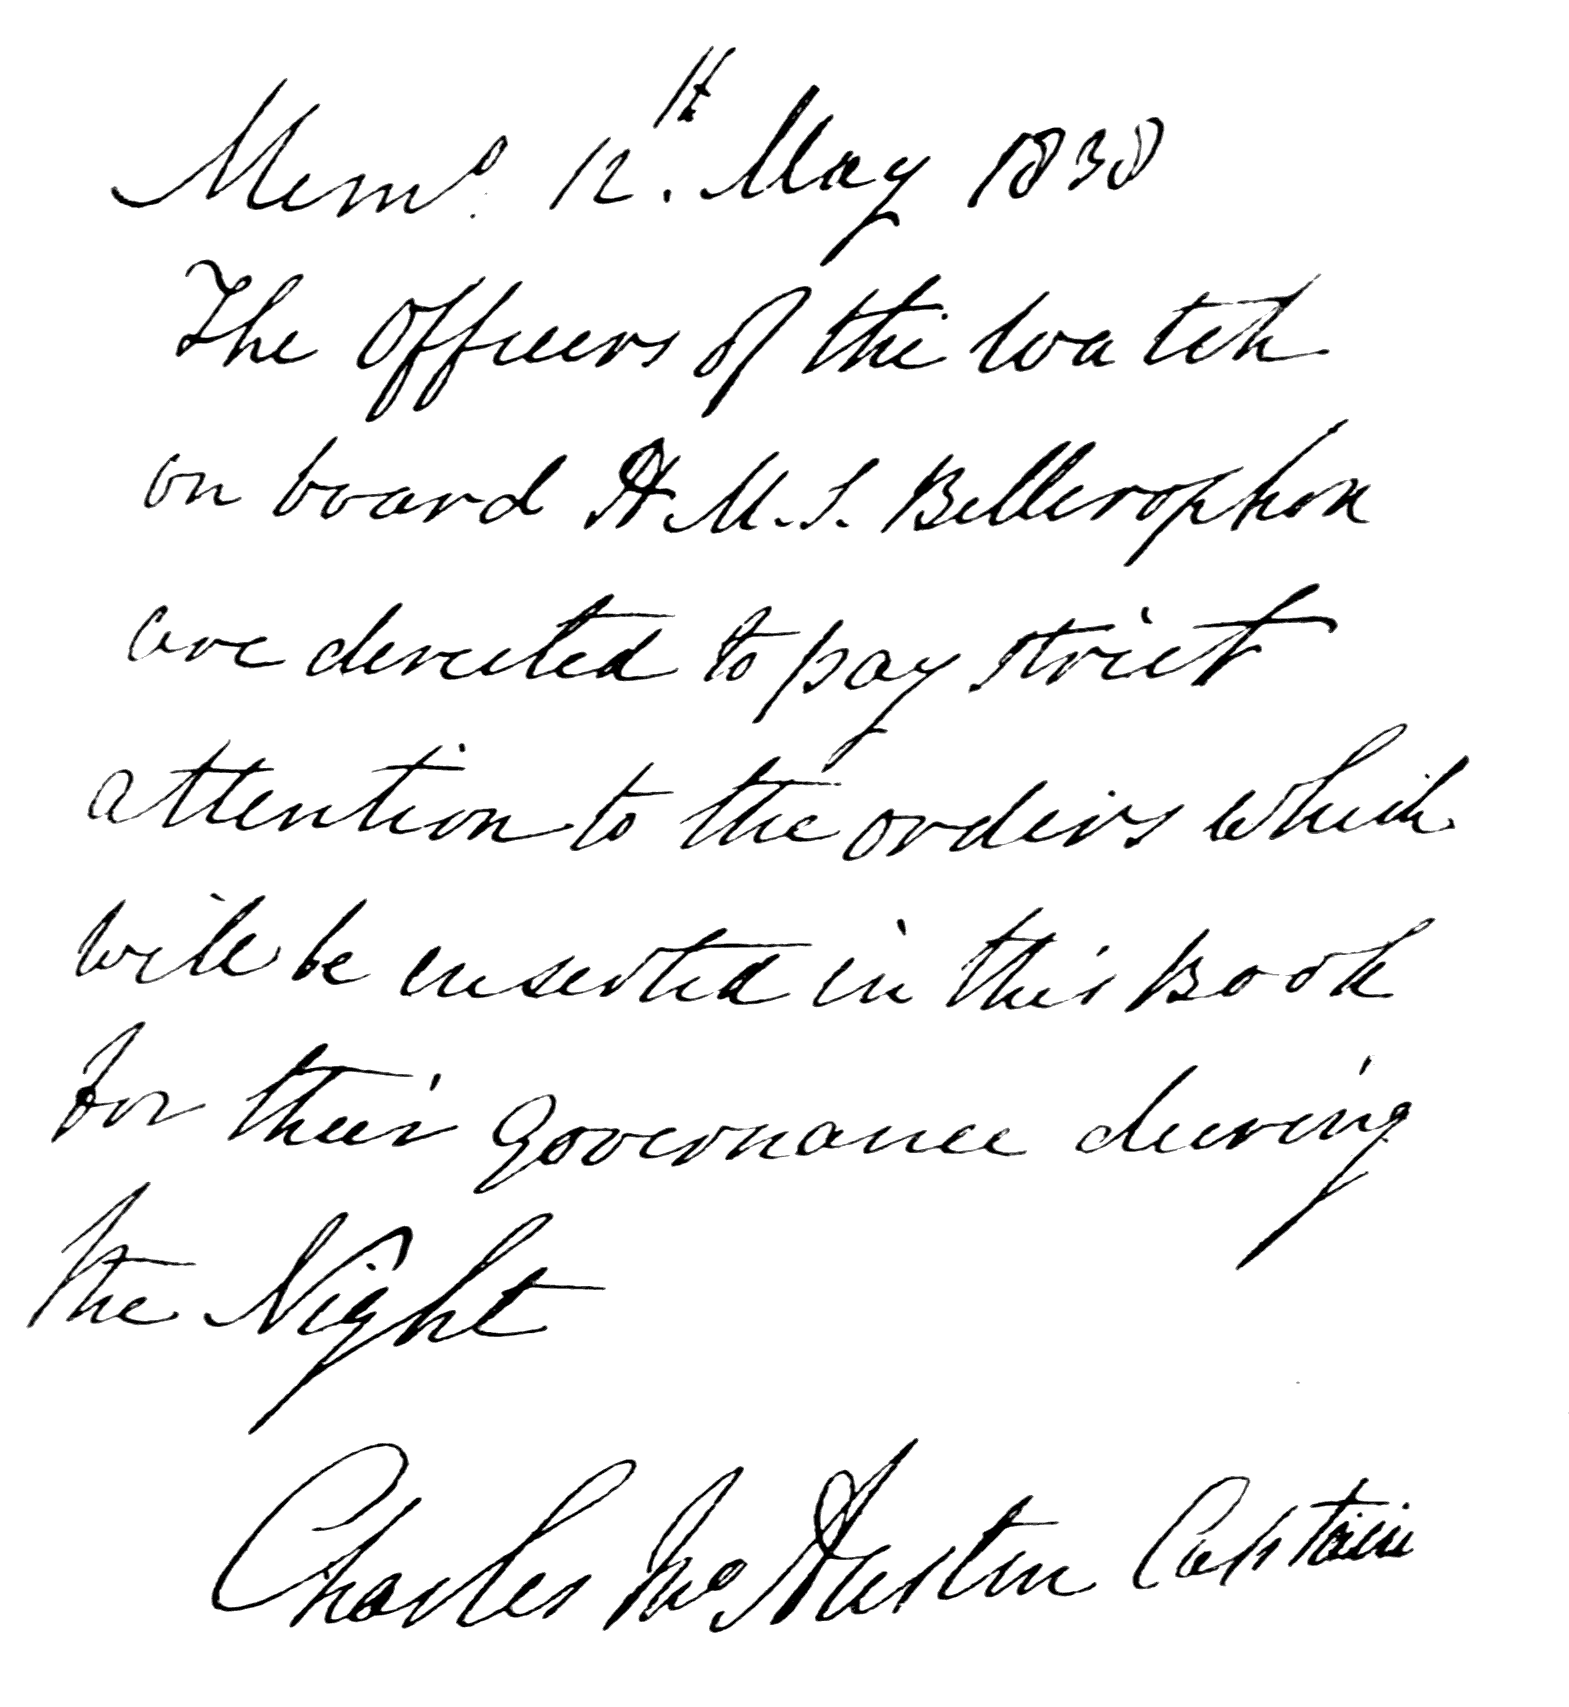 Memo. 12th. May 1838
The Officers of the Watch
on board H.M.S. Bellerophon
are directed to pay strict
attention to the orders which
will be inserted in this Book
for their Governance during
the Night
Charles Jno. Austen Captain